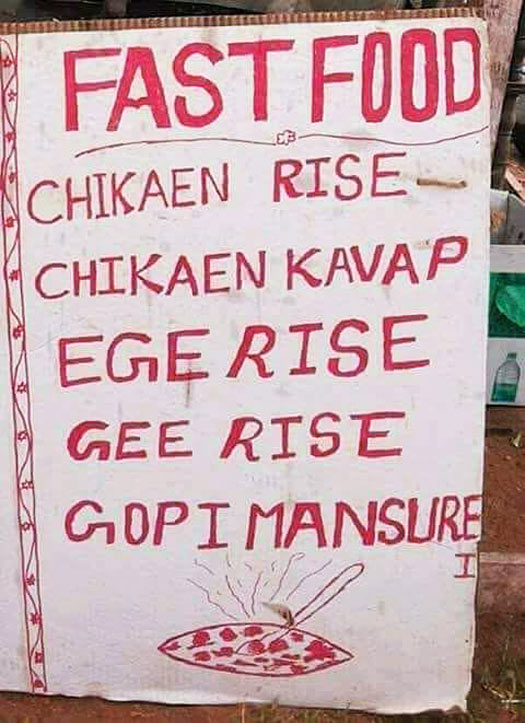 FAST FOOD
CHIKAEN RISE
CHIKAEN KAVAP
EGE RISE
GEE RISE
GOPI MANSURE
I